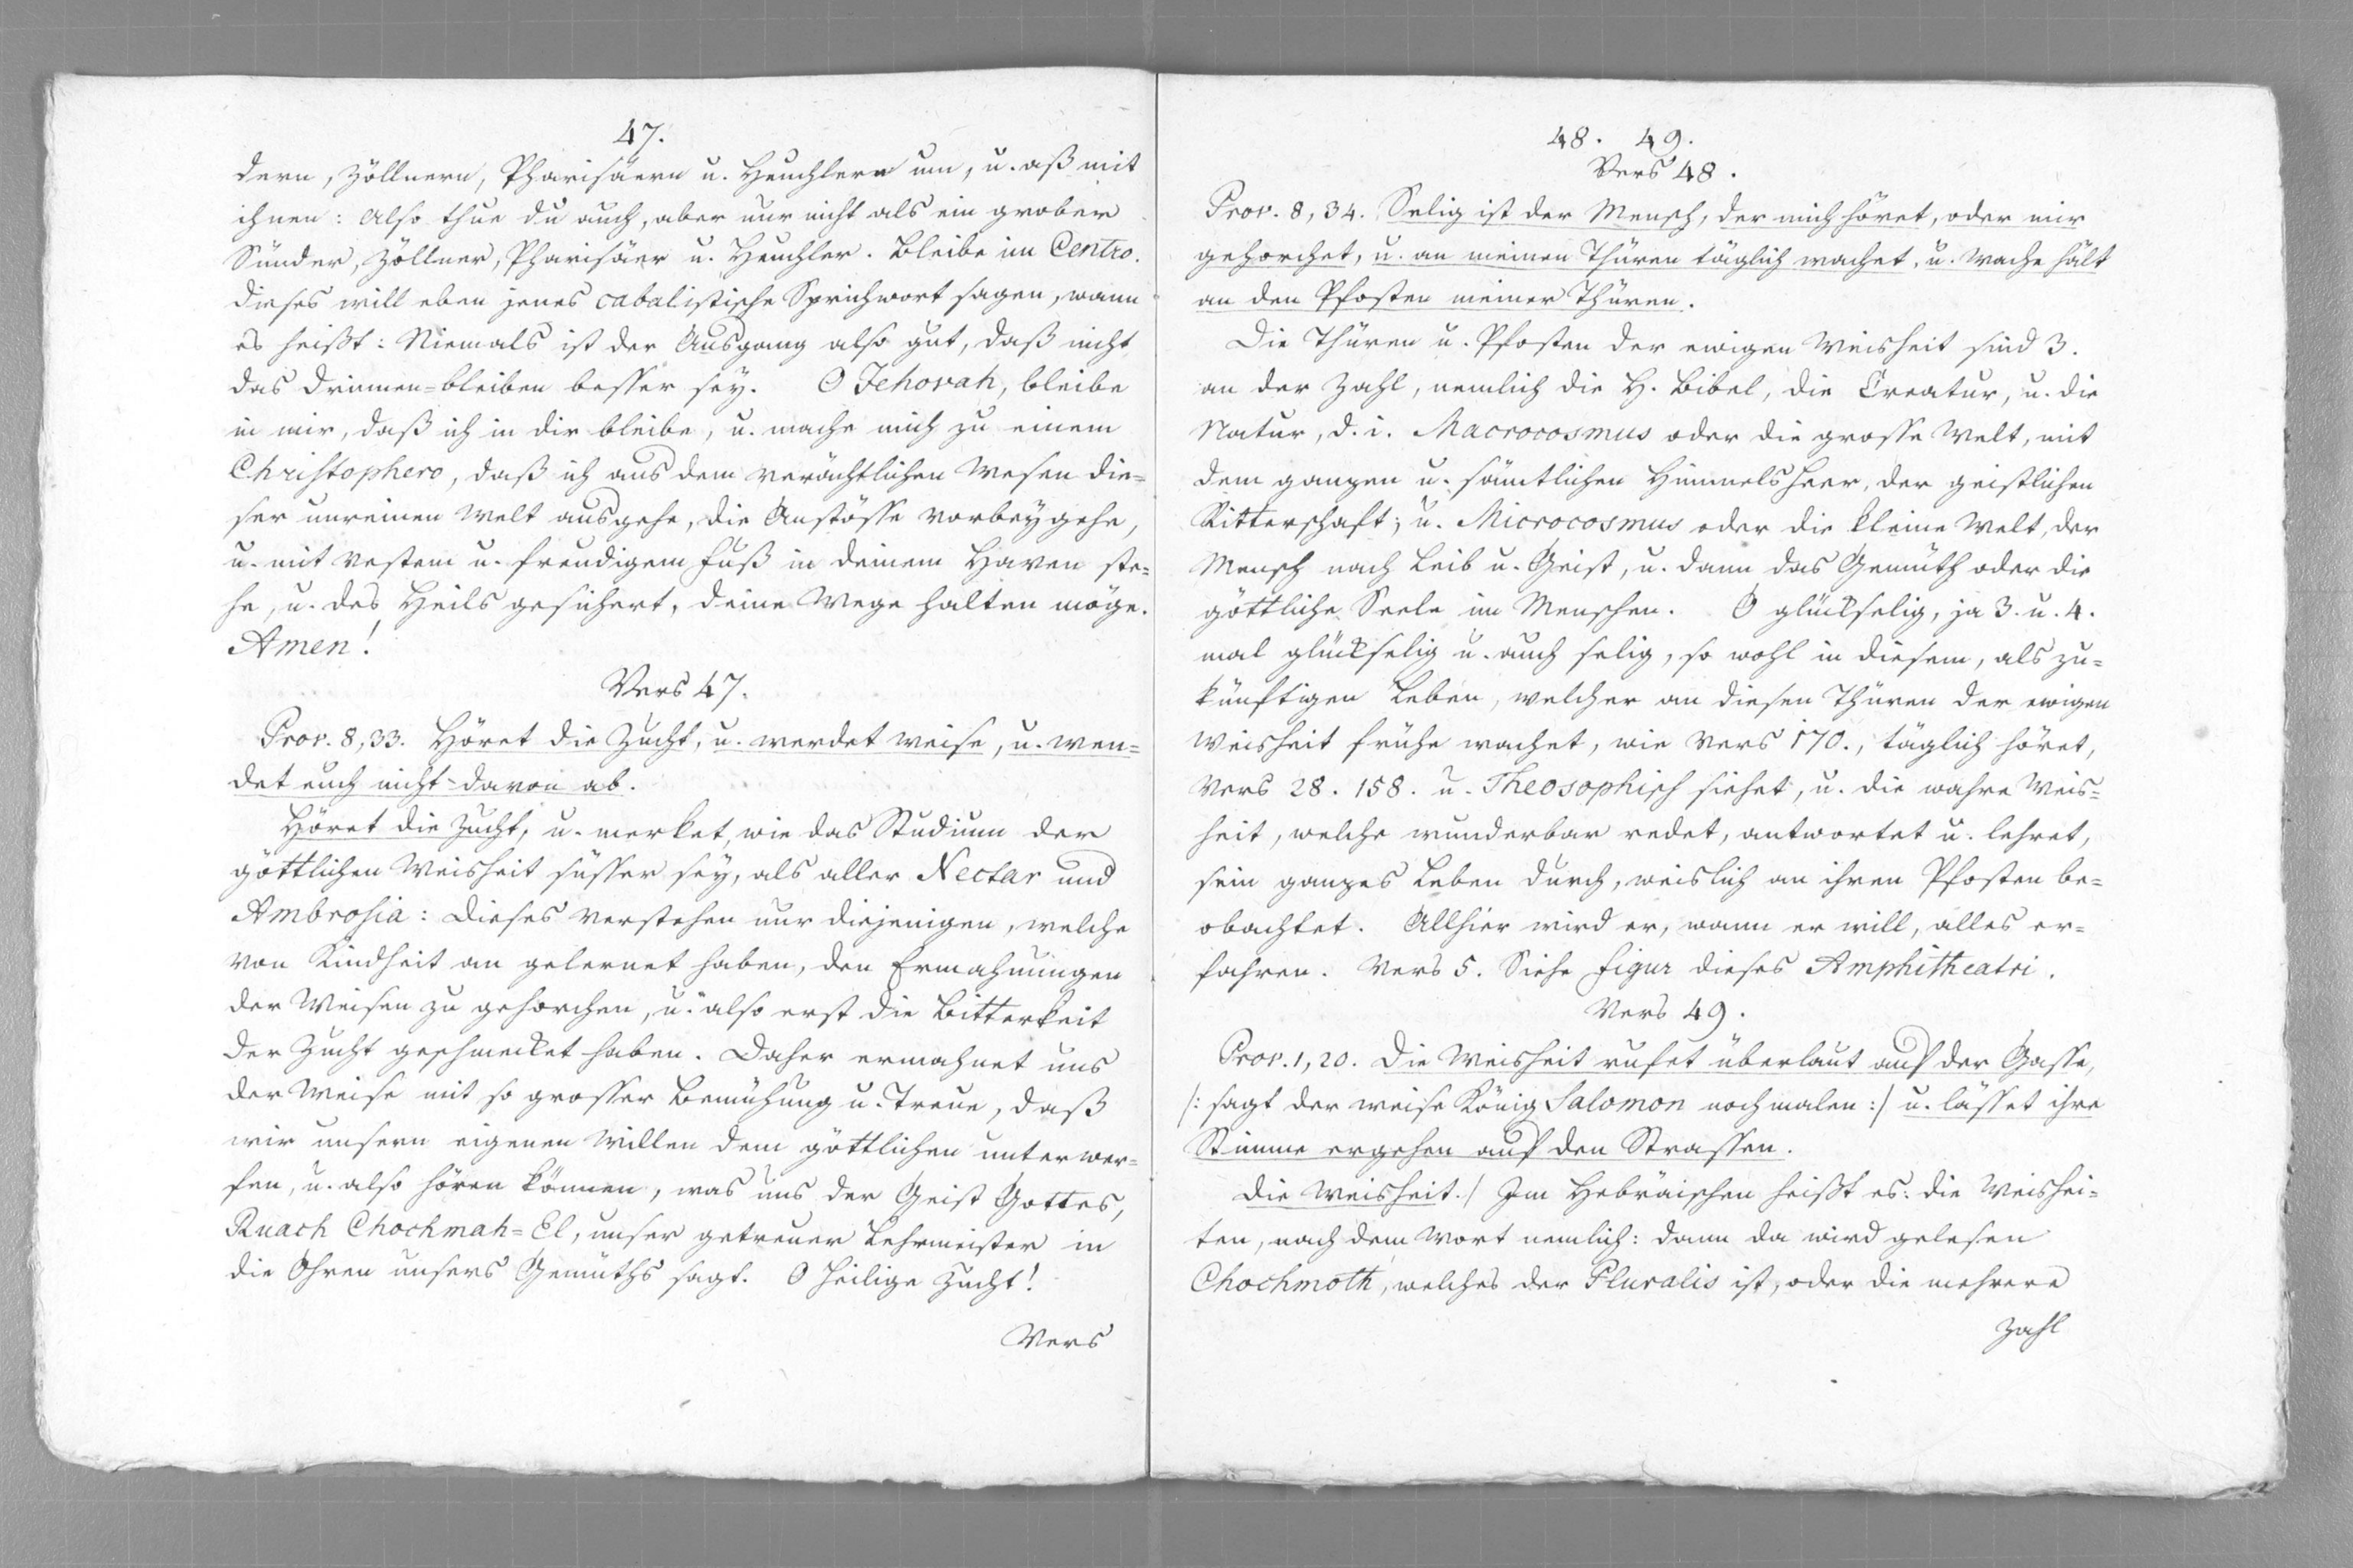 47.
dern, Zöllnern, Pharisäern u. Heuchlern um, u. aß mit
ihnen: Also thue du auch, aber nur nicht als ein grober
Sünder, Zöllner, Pharisäer u. Heuchler. Bleibe im Centro.
dieses will eben jenes cabalistische Sprichwort sagen, wann
es heißt: Niemals ist der Ausgang also gut, daß nicht
das Drinnen=bleiben besser sey. O Jehovah, bleibe
in mir, daß ich in dir bleibe, u. mache mich zu einem
Christophero, daß ich aus dem verächtlichen Wesen die=
ser unreinen Welt ausgehe, die Anstösse vorbeygehe,
u. mit vestem u. freudigem Fuß in deinem Haven ste=
he, u. des Heils gesichert, deine Wege halten möge.
Amen!
Vers 47.
Prov. 8,33. Höret die Zucht, u. werdet weise, u. wen=
det euch nicht davon ab.
Höret die Zucht, u. merket, wie das Studium der
göttlichen Weisheit süsser sey, als aller Nectar und
Ambrosia: Dieses verstehen nur diejenigen, welche
von Kindheit an gelernet haben, den Ermahnungen
der Weisen zu gehorchen, u. also erst die Bitterkeit
der Zucht geschmecket haben. Daher ermahnet uns
der Weise mit so grosser Bemühung u. Treue, daß
wir unsern eigenen Willen dem göttlichen unterwer=
fen, u. also hören können, was uns der Geist Gottes,
Ruach Chochmah=El, unser getreuer Lehrmeister in
die Ohren unsers Gemüths sagt. O heilige Zucht!
Vers
48. 49.
Vers 48.
Prov. 8,34. Selig ist der Mensch, der mich höret, oder mir
gehorchet, u. an meinen Thüren täglich wachet, u. Wache hält
an den Pfosten meiner Thüren.
Die Thüren u. Pfosten der ewigen Weisheit sind 3.
an der Zahl, nemlich die H. Bibel, die Creatur, u. die
Natur, d. i. Macrocosmus oder die grosse Welt, mit
dem ganzen u. sämtlichen Himmelsheer, der geistlichen
Ritterschaft; u. Microcosmus oder die kleine Welt, der
Mensch nach Leib u. Geist, u. dann das Gemüth oder die
göttliche Seele im Menschen. O glückselig, ja 3. u. 4.
mal glückselig u. auch selig, so wohl in diesem, als zu=
künftigen Leben, welcher an diesen Thüren der ewigen
Weisheit frühe wachet, wie Vers 170., täglich höret,
Vers 28. 158. u. Theosophisch siehet, u. die wahre Weis=
heit, welche wunderbar redet, antwortet u. lehret,
sein ganzes Leben durch, weislich an ihren Pfosten be=
obachtet. Allhier wird er, wann er will, alles er=
fahren. Vers 5. Siehe Figur dieses Amphitheatri.
Vers 49.
Prov. 1,20. Die Weisheit rufet überlaut auf der Gasse,
/: sagt der weise König Salomon nochmalen :/ u. lässet ihre
Stimme ergehen auf den Strassen.
Die Weisheit./ Im Hebräischen heißt es: die Weishei=
ten, nach dem Wort nemlich: dann da wird gelesen
Chochmoth, welches der Pluralis ist, oder die mehrere
Zahl